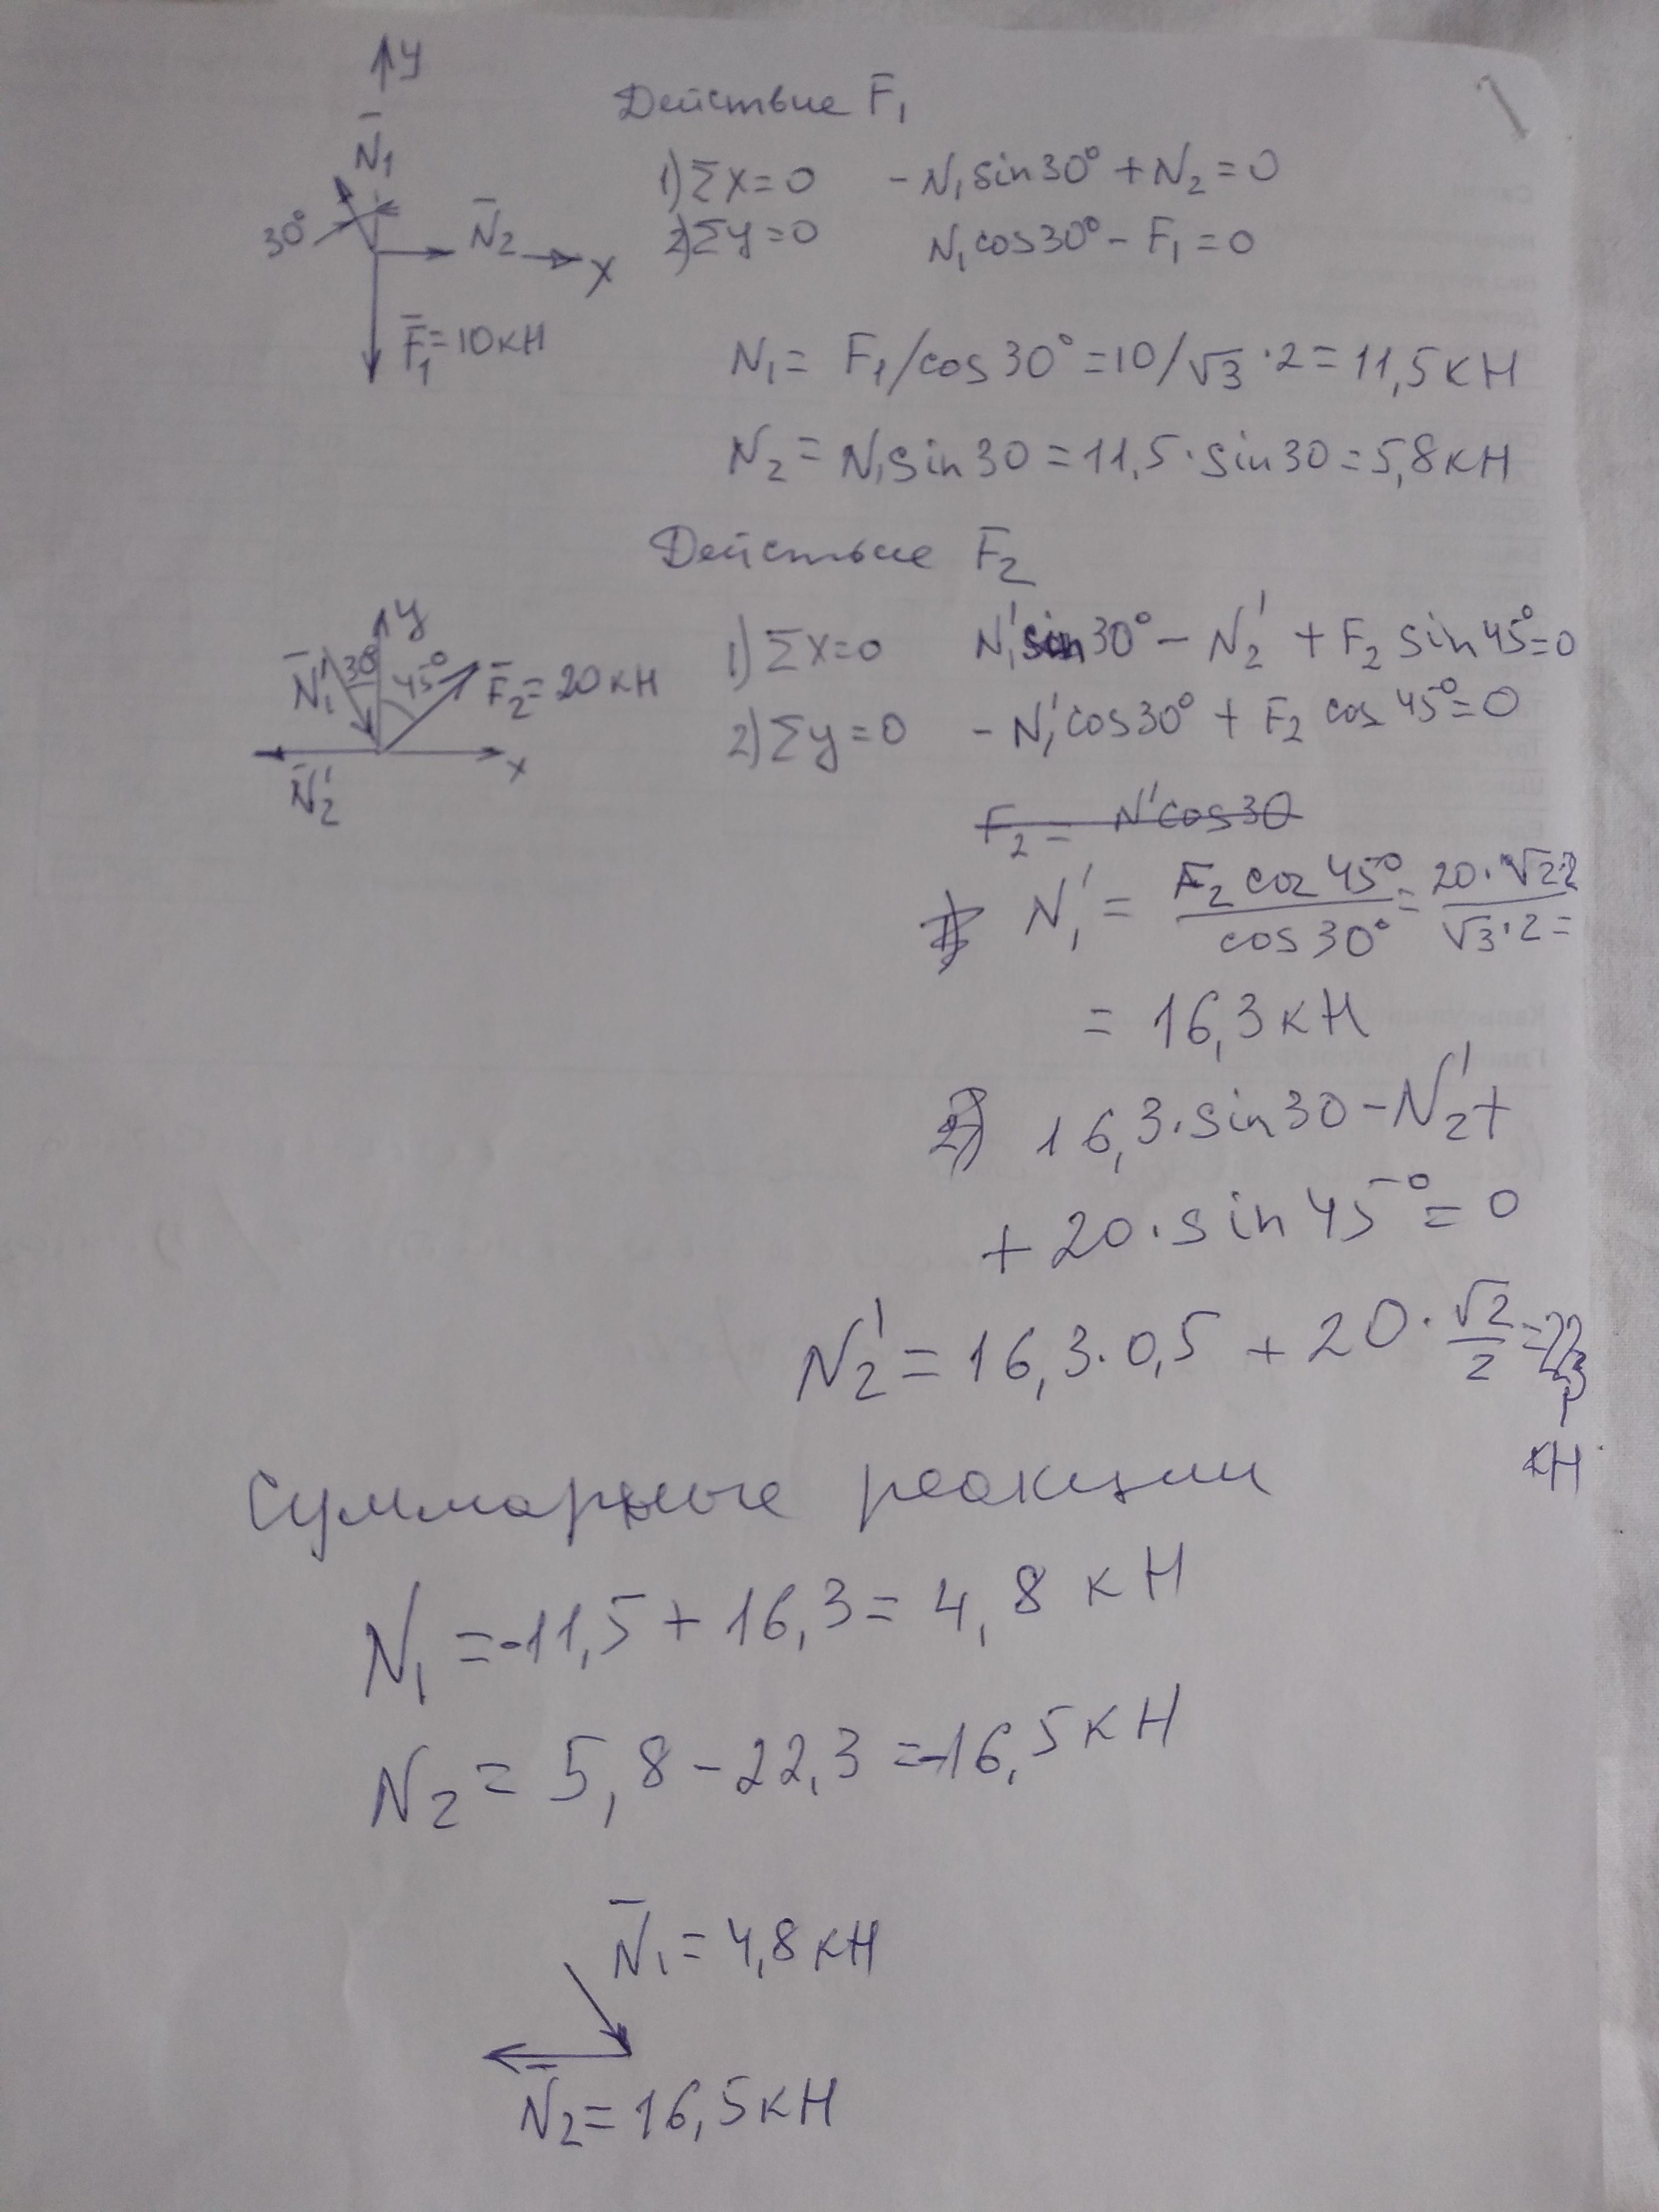 1
Действие F̄₁
y
N̄₁
30°
N̄₂
x
F̄₁=10кН
1) Σx=0 -N₁sin30°+N₂=0
2) Σy=0 N₁cos30°-F₁=0
N₁= F₁/cos30°=10/√3·2=11,5кН
N₂=N₁sin30=11,5·sin30=5,8кН
Действие F̄₂
y
N̄₁'
30°
45°
F̄₂=20кН
x
N̄₂'
1) Σx=0 N₁'sin30°-N₂'+F₂sin45°=0
2) Σy=0 -N₁'cos30°+F₂cos45°=0
F₂= N'cos30
N₁'= F₂cos45°/cos30°= 20·√2·2/√3·2=
= 16,3кН
2) 16,3·sin30-N₂'+
+20·sin45°=0
N₂'=16,3·0,5+20·√2/2=22,3
кН
Суммарные реакции
N₁=-11,5+16,3=4,8 кН
N₂=5,8-22,3=-16,5кН
N̄₁=4,8кН
N̄₂=16,5кН